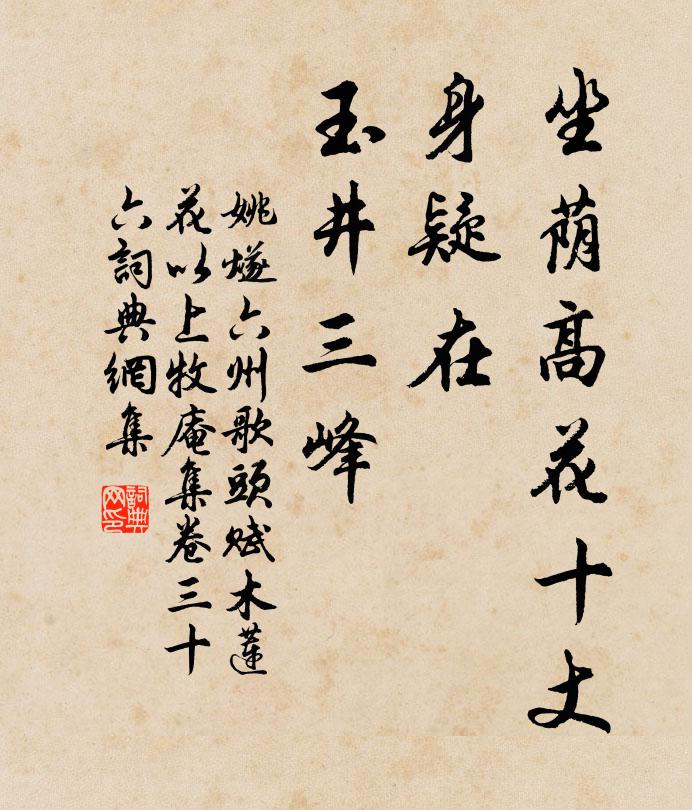 坐荫高花十丈
身疑在
玉井三峰
姚燧六州歌頭賦木蓮
花以上牧庵集卷三十
六詞典網集
詞典
网印